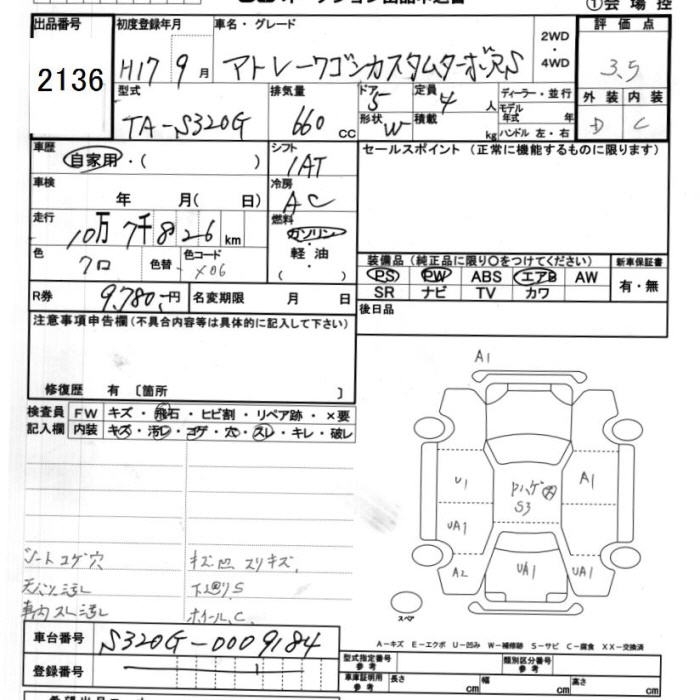 ①会場控
出品番号
2136
初度登録年月
H17 9 月
車名・グレード
アトレーワゴンカスタムターボRS
2WD
・
4WD
評価点
3.5
外装 内装
D C
型式
TA-S320G
排気量
660 cc
ドア
5
形状
W
定員
4 人
積載
kg
ディーラー・並行
モデル
年式 年
ハンドル 左・右
車歴
自家用・( )
シフト
IAT
セールスポイント (正常に機能するものに限ります)
車検
年 月( 日)
冷房
AC
走行
10万 7千 8 2 6 km
燃料
ガソリン
軽油
( )
色
クロ
色替
色コード
X06
装備品 (純正品に限り〇をつけてください)
PS PW ABS エアB AW
SR ナビ TV カワ
新車保証書
有・無
R券
9,780-円
名変期限 月 日
後日品
注意事項申告欄(不具合内容等は具体的に記入して下さい)
修復歴 有 〔箇所 〕
検査員
記入欄
FW キズ・飛石・ヒビ割・リペア跡・×要
内装 キズ・汚レ・コゲ・穴・スレ・キレ・破レ
シートコゲ穴
天バリ汚レ
車内スレ汚レ
キズ凹スリキズ,
下廻りS
ホイールC,
A1
U1
UA1
A2
Pハゲ大
S3
A1
UA1
UA1
スペア
A-キズ E-エクボ U-凹み W-補修跡 S-サビ C-腐食 XX-交換済
車台番号
S320G-0009184
登録番号
型式指定番号
参考
類別区分番号
参考
車庫証明用
参考
長さ cm
幅 cm
高さ cm